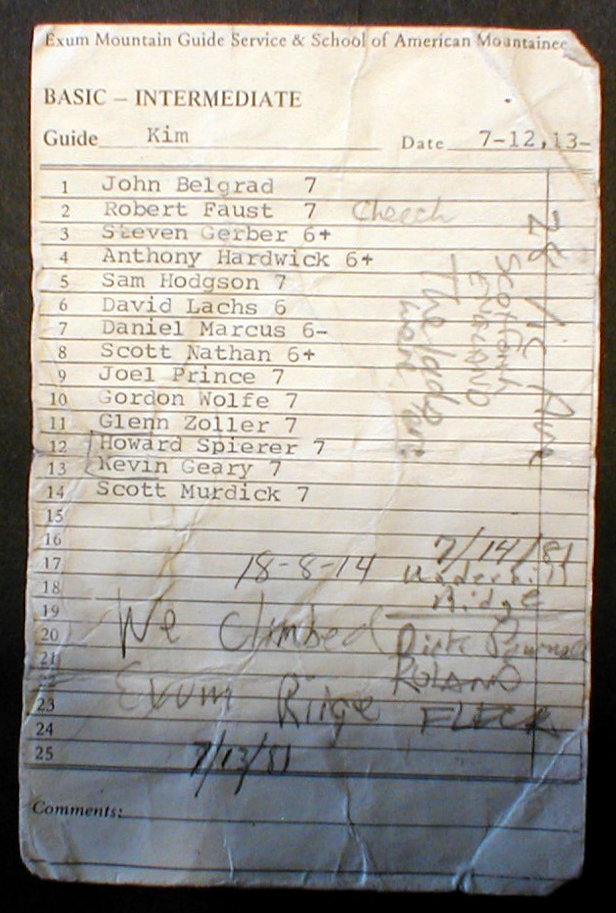 Exum Mountain Guide Service & School of American Mountainee
BASIC – INTERMEDIATE
Guide Kim Date 7-12,13-
1 John Belgrad 7
2 Robert Faust 7 Cheech
3 Steven Gerber 6+
4 Anthony Hardwick 6+
5 Sam Hodgson 7
6 David Lachs 6
7 Daniel Marcus 6-
8 Scott Nathan 6+
9 Joel Prince 7
10 Gordon Wolfe 7
11 Glenn Zoller 7
12 Howard Spierer 7
13 Kevin Geary 7
14 Scott Murdick 7
15
16
17
18
19
20
21
23
24
25
28 Vic Ave
Scotland
England
The
7/14/81
Underhill
Ridge
Dick
ROLAND
FLECK
18-8-14
We climbed
Exum Riige
7/13/81
Comments: